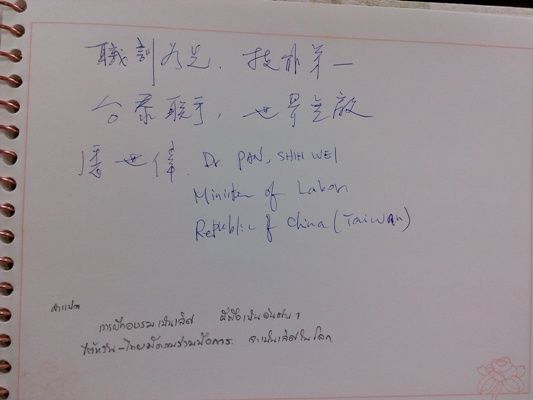 職訓為先，技能第一
台泰聯手，世界無敵
潘世偉 Dr. PAN, SHIH WEI
Minister of Labor
Republic of China (Taiwan)
คำแปล
การฝึกอบรมเป็นเลิศ ฝีมือเป็นอันดับ 1
ไต้หวัน-ไทย จะเป็นเลิศในโลก